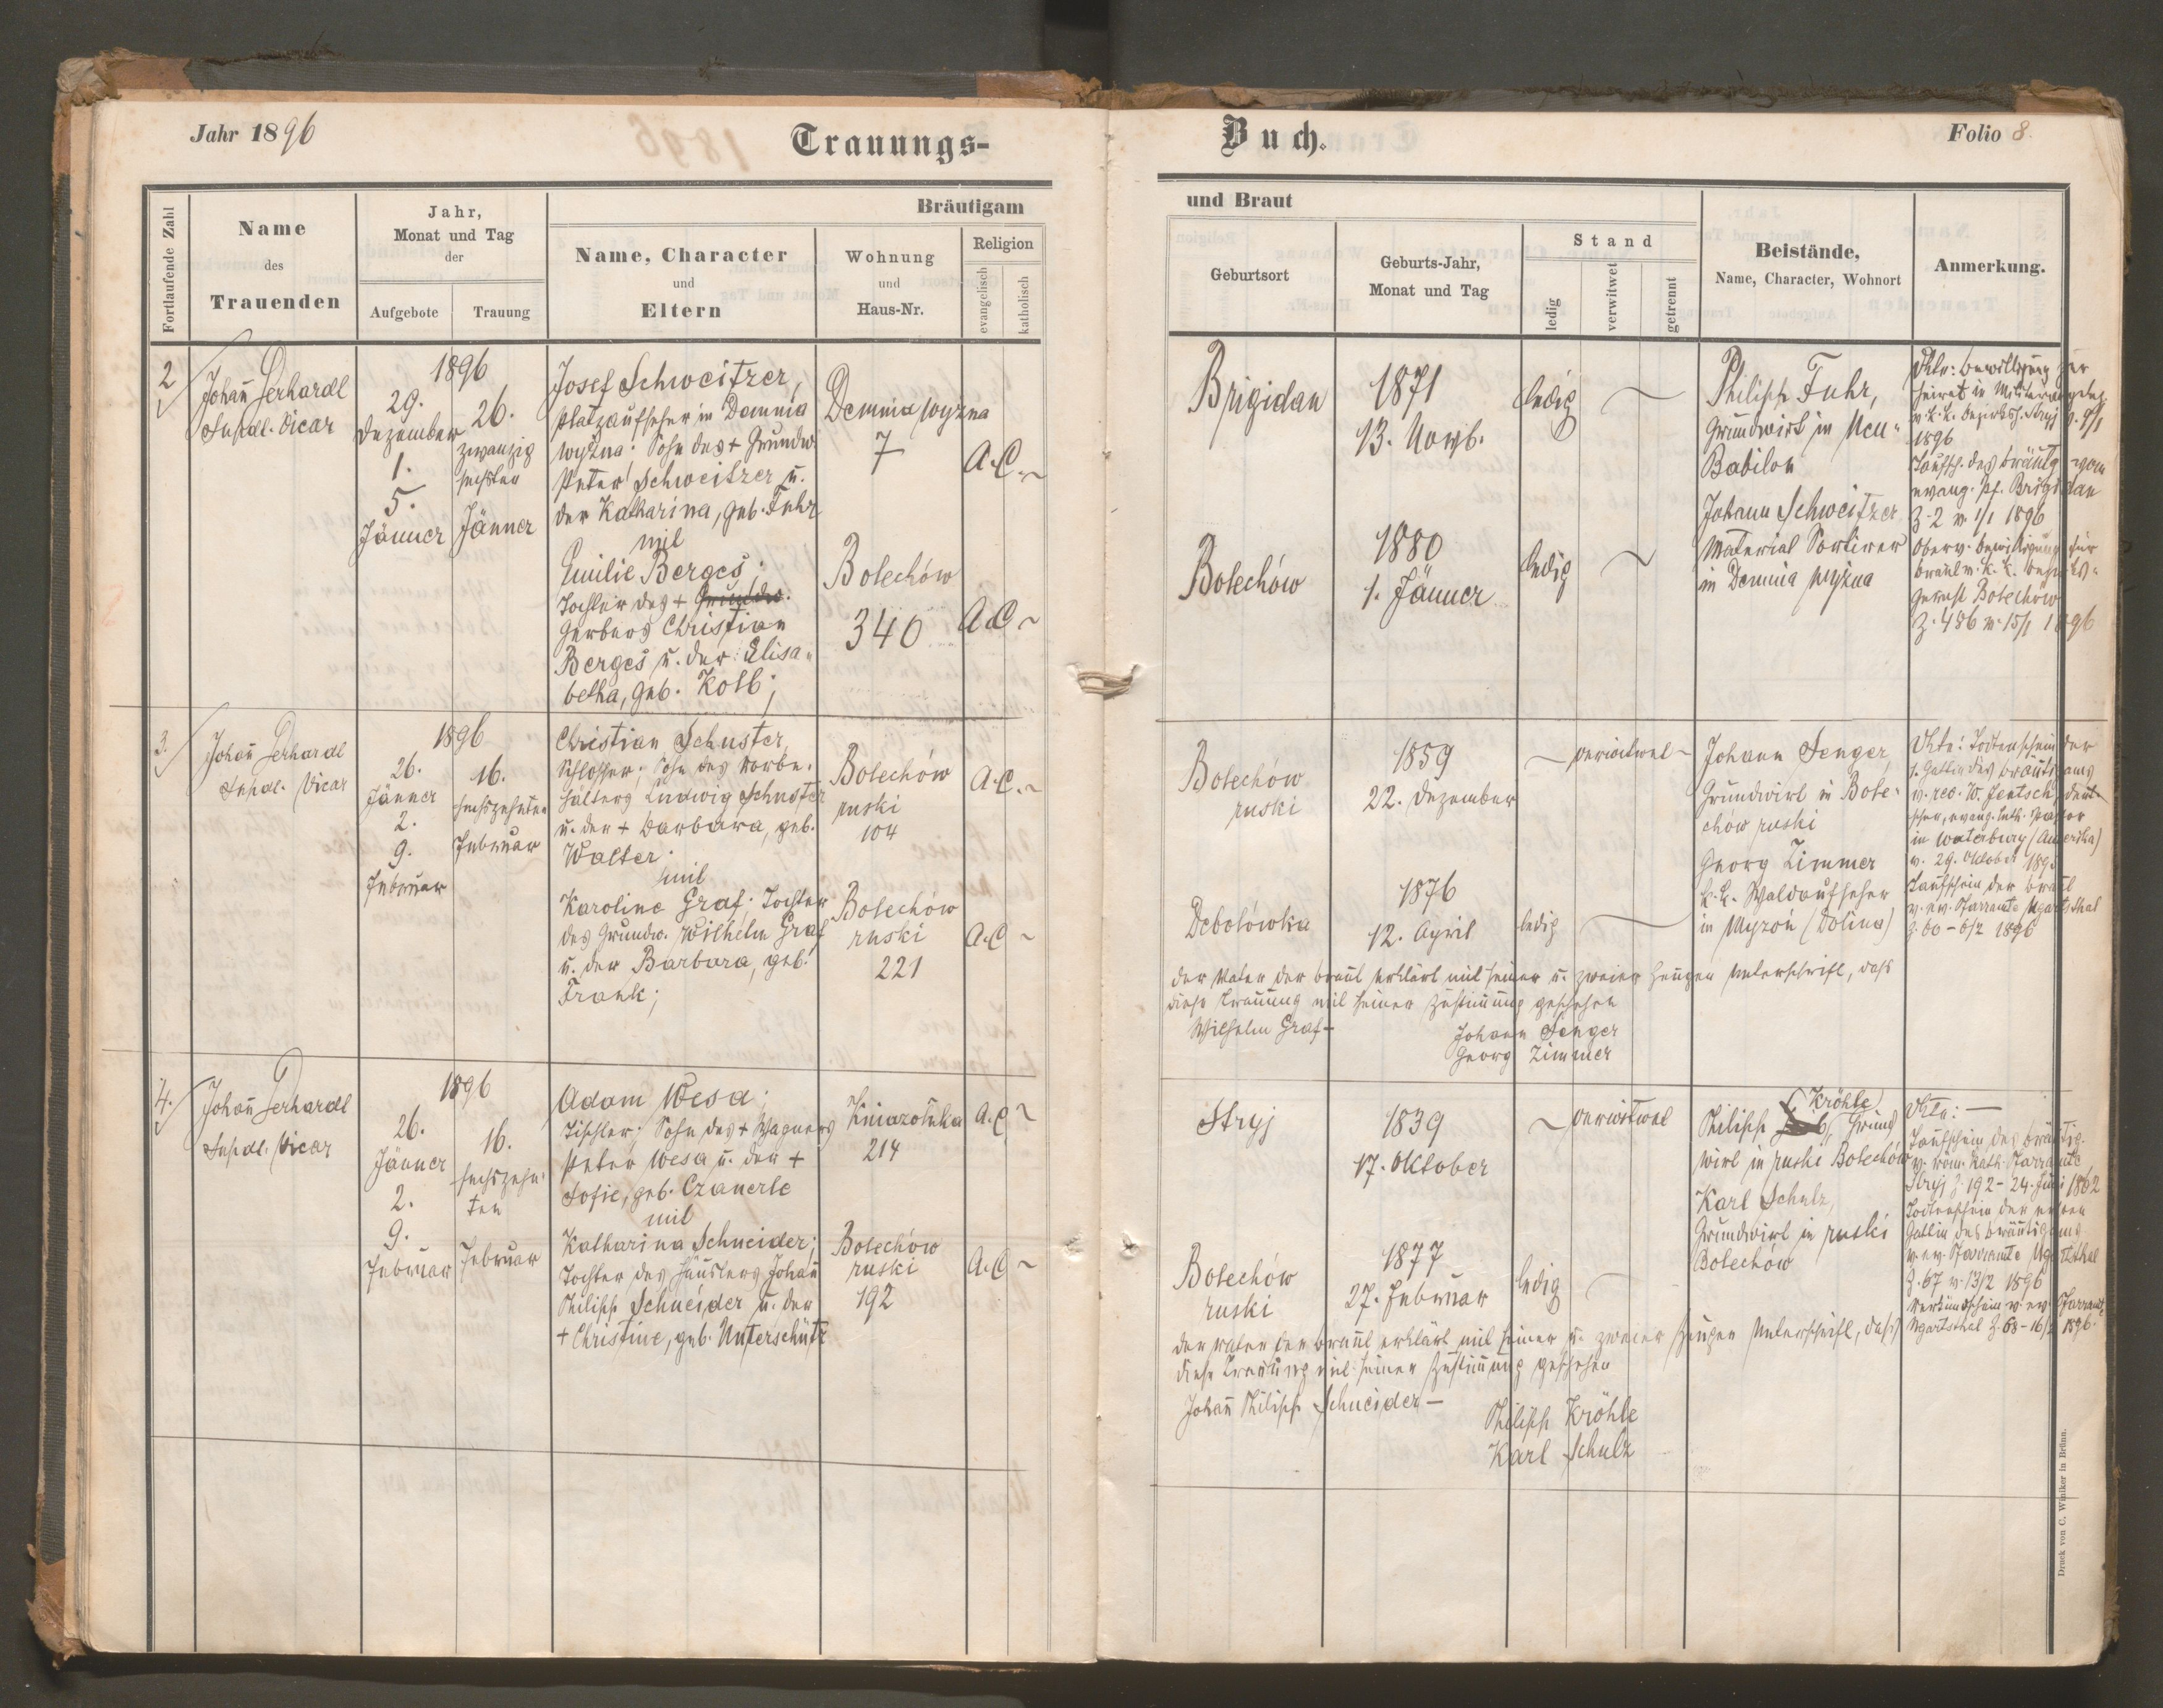 Jahr 1896
Trauungs-
Fortlaufende Zahl
Name
des
Trauenden
Jahr,
Monat und Tag
der
Aufgebote
Trauung
Bräutigam
Name, Character
und
Eltern
Wohnung
und
Haus-Nr.
Religion
evangelisch
katholisch
2
Johañ Gerhardl
Supdl. Vicar
1896
29.
Dezember
1.
5.
Jänner
26.
zwanzig
sechsten
Jänner
Josef Schweitzer,
Platzaufseher in Demnia
wyżna: Sohn des + Grundw.
Peter Schweitzer u.
der Katharina, geb. Fuhr
mit
Emilie Berges;
Tochter des + Grundw.
Gerbers Christian
Berges u. der Elisa-
betha, geb. Kolb;
Demnia wyżna
7
A.C. ~
Bolechów
340
A.C ~
3.
Johañ Gerhardl
Supdl. Vicar
1896
26.
Jänner
2.
9.
Februar
16.
sechszehnten
Februar
Christian Schuster,
Schlosser; Sohn des
Ludwig Schuster
u. der + Barbara, geb.
Walter;
mit
Karoline Graf; Tochter
des Grundw. Wilhelm Graf
u. der Barbara, geb.
Frank;
Bolechów
ruski
104
A.C. ~
Bolechów
ruski
221
A.C ~
4.
Johañ Gerhardl
Supdl. Vicar
1896
26.
Jänner
2.
9.
Februar
16.
sechszehn-
ten
Februar
Adam Wesa;
Tischler; Sohn des + Wagners
Peter Wesa u. der +
Sofie, geb. Czanerle
mit
Katharina Schneider;
Tochter des Häuslers Johañ
Philipp Schneider u. der
+ Christine, geb. Unterschütz
Kniazołuka
214
A.C ~
Bolechów
ruski
192
A.C ~
Buch.
Folio 8.
und Braut
Geburtsort
Geburts-Jahr,
Monat und Tag
Stand
ledig
verwitwet
getrennt
Beistände,
Name, Character, Wohnort
Anmerkung.
Brigidau
1871
13. Novb.
ledig
Philipp Fuhr,
Grundwirt in Neu-
Babilon
Johann Schweitzer
Material Sortirer
in Demnia wyżna
Bolechów
1880
1. Jänner
ledig
Akte: Bewilligung zur
Heirat in
v. k.k. Bezirksh. Stryj
1896
Taufsch. des Bräutg. vom
evang. Pf. Brigidau
Z. 2 v. 1/1 1896
Oberv. Bewilligung für
Braut v. k.k. Bezirks-
Gericht Bolechów
Z. 486 v. 15/1 1896
Bolechów
ruski
1859
22. Dezember
verwitwet
Johann Senger,
Grundwirt in Bole-
chów ruski
Georg Zimmer
k.k. Waldaufseher
in Myzoń (Dolina)
Debolówka
1876
12. April
ledig
Akte: Todtenschein der
1. Gattin des Bräutigams
v. rev. W. Jentsch, deut-
scher, evang. luth. Pastor
in Waterbury (Amerika)
v. 29. Oktober
Taufschein der Braut
v. ev. Pfarramte Ugartsthal
Z. 60 - 6/2 1896
Der Vater der Braut erklärt mit seiner u. zweier Zeugen Unterschrift, dass
diese Trauung mit seiner Zustimmung geschehen
Wilhelm Graf -
Johann Senger
Georg Zimmer
Stryj
1839
17. Oktober
verwitwet
(Kröhle)
Philipp Grund
wirt in ruski Bolechów
Karl Schulz,
Grundwirt in ruski
Bolechów
Bolechów
ruski
1877
27. Februar
ledig
Akte: —
Taufschein des Bräutig.
v. röm. kath. Pfarramte
Stryj Z. 192 - 24. Juni 1862
Todtenschein der ersten
Gattin des Bräutigams
v. ev. Pfarramte Ugartsthal
Z. 67 v. 13/2 1896
Verkündschein v. ev. Pfarramt
Ugartsthal Z. 68 - 16/2 1896.
Der Vater der Braut erklärt mit seiner u. zweier Zeugen Unterschrift, dass
diese Trauung mit seiner Zustimmung geschehen
Johañ Philipp Schneider —
Philipp Kröhle
Karl Schulz
Druck von C. Winiker in Brünn.